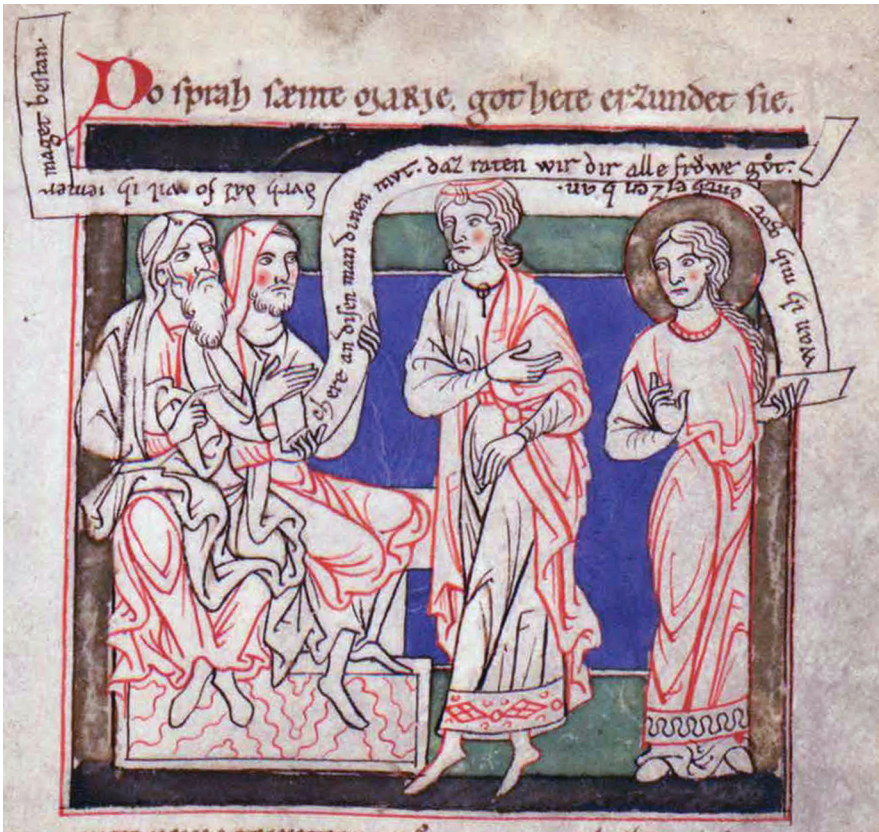 Do sprah sæinte MARJE. got hete erzundet sie.
chere an disen man dinen mvt. daz raten wir dir alle frǒwe gv̊t.
wan ih mih gote entheizen han.
dvrh daz so wil ih iemen
maget bestan.